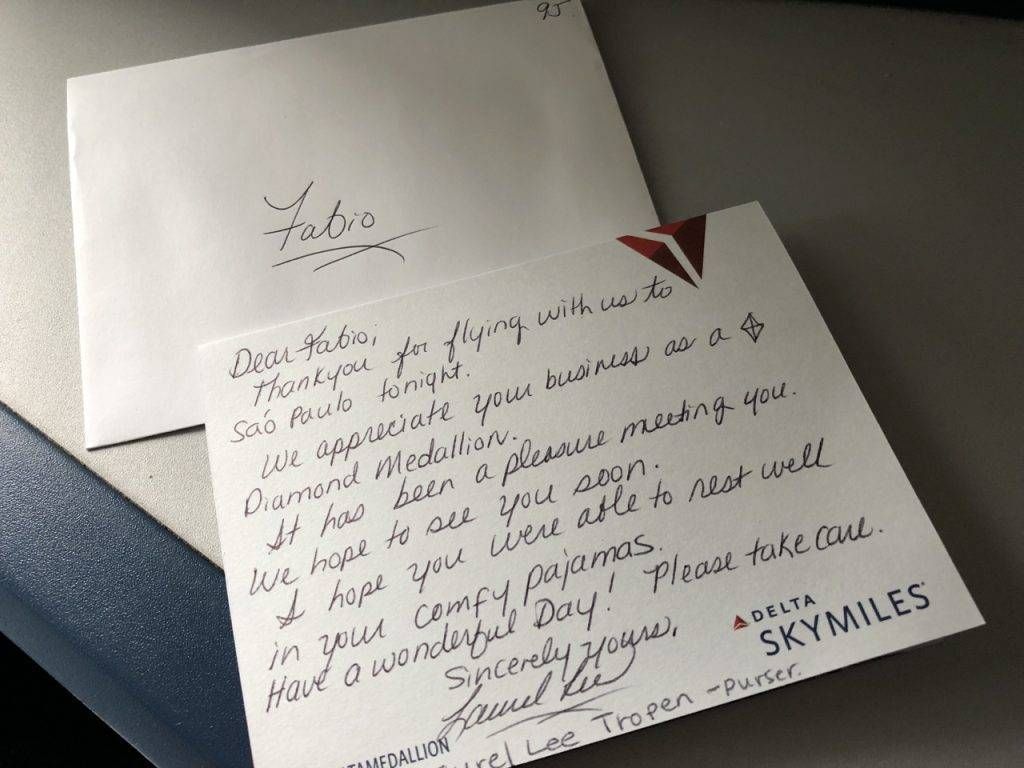 95
Fabio
Dear Fabio,
Thankyou for flying with us to
São Paulo tonight.
We appreciate your business as a
Diamond Medallion.
It has been a pleasure meeting you.
We hope to see you soon.
I hope you were able to rest well
in your comfy pajamas.
Have a wonderful Day! Please take care.
Sincerely yours,
Laurel Lee
DELTA
SKYMILES
TAMEDALLION
urel Lee Tropen - purser.